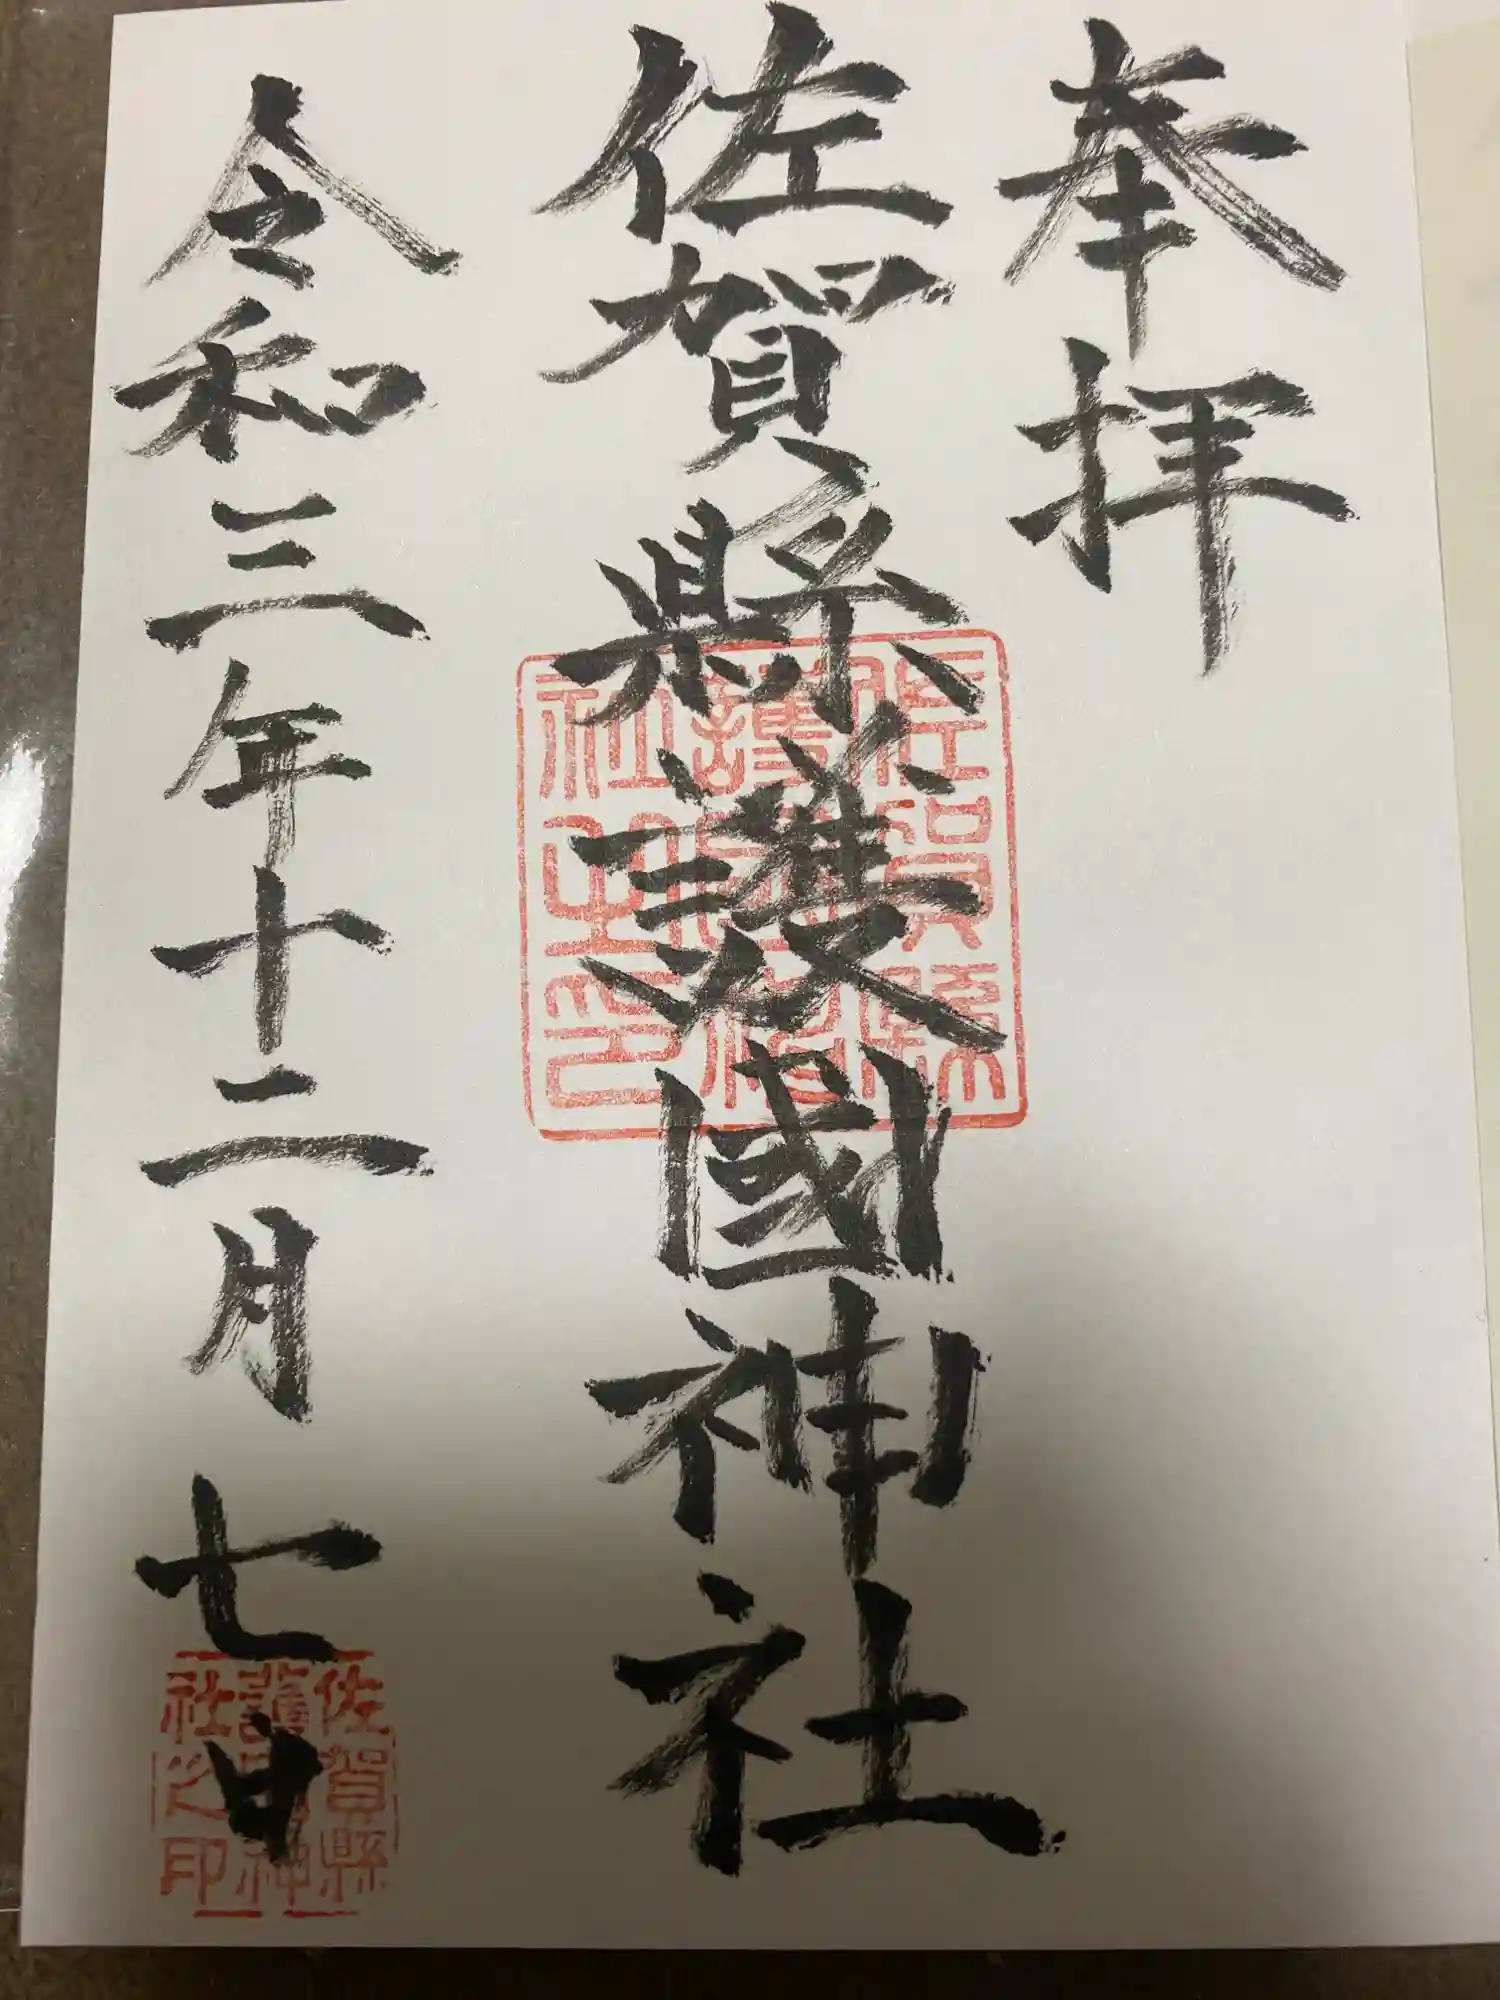 奉拝
佐賀縣護國神社
令和三年十二月七日
佐賀縣
護國神
社之印
佐賀縣
護國神
社之印